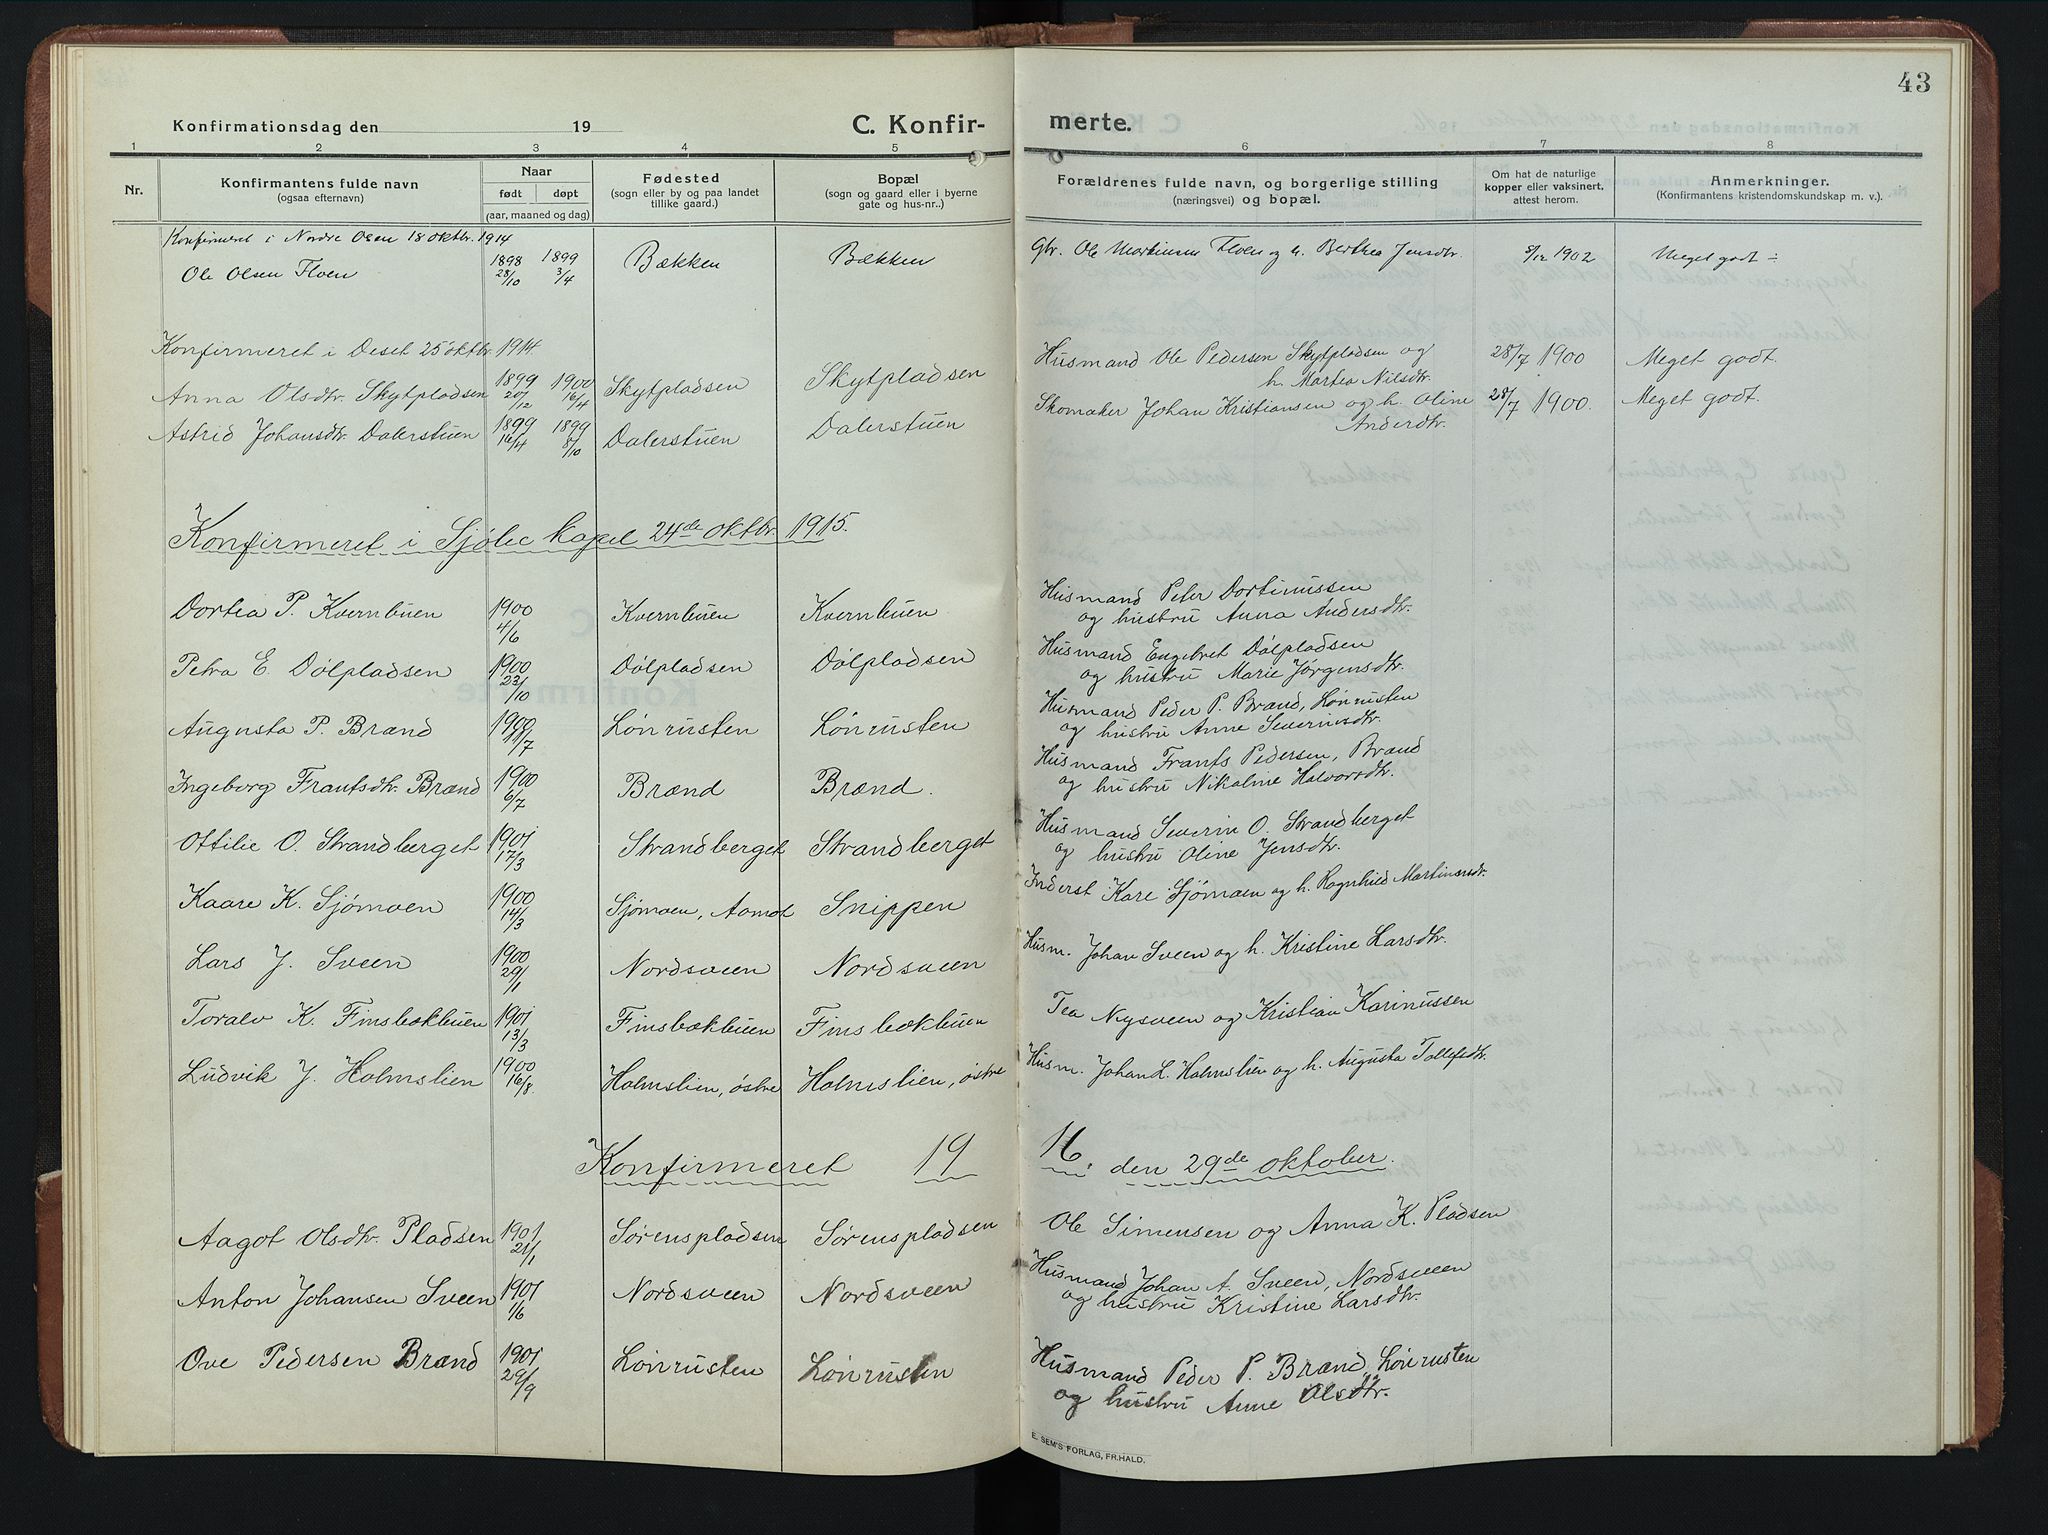 43
Konfirmationsdag den 19 C. Konfir- merte.
1 2 3 4 5 6 7 8
Nr. Konfirmantens fulde navn (ogsaa efternavn) Naar født døpt (aar, maaned og dag) Fødested (sogn eller by og paa landet tillike gaard.) Bopæl (sogn og gaard eller i byerne gate og hus-nr..) Forældrenes fulde navn, og borgerlige stilling (næringsvei) og bopæl. Om hat de naturlige kopper eller vaksinert, attest herom. Anmerkninger. (Konfirmantens kristendomskundskap m. v.).
Konfirmeret i Nordre Osen 18 oktbr. 1914
Ole Olsen Floen 1898 28/10 1899 3/4 Bækken Bækken Gbr. Ole Martinsen Floen og h. Berthea Jensdtr. 5/12 1902 Meget godt
Konfirmeret i Deset 25 oktbr. 1914.
Anna Olsdtr. Skytpladsen 1899 20/12 1900 16/4 Skytpladsen Skytpladsen Husmand Ole Pedersen Skytpladsen og h. Martea Nilsdtr. 28/7 1900 Meget godt.
Astrid Johansdtr. Dalerstuen 1899 16/4 1899 8/10 Dalerstuen Dalerstuen Skomaker Johan Kristiansen og h. Oline Andersdtr. 28/7 1900. Meget godt.
Konfirmeret i Sjølie kapel 24de oktbr. 1915.
Dortea P. Kvernbuen 1900 4/6 Kvernbuen Kvernbuen Husmand Peter Dortinussen
og hustru Anna Andersdtr.
Petra E. Dølpladsen 1900 23/10 Dølpladsen Dølpladsen Husmand Engebret Dølpladsen
og hustru Marie Jørgensdtr.
Augusta P. Brænd 1900 /7 Lønrusten Lønrusten Husmand Peder P. Brænd, Lønrusten
og hustru Anne Severinsdtr.
Ingeborg Frantsdtr. Brænd 1900 6/7 Brænd Brænd. Husmand Frants Pedersen, Brænd
og hustru Nikoline Halvorsdtr.
Ottilie O. Strandberget 1901 17/3 Strandberget Strandberget Husmand Severin O. Strandberget
og hustru Oline Jensdtr.
Kaare K. Sjømoen 1900 14/3 Sjømoen, Aamot Snippen Inderst Kare Sjømoen og h. Ragnhild Martinusdtr.
Lars J. Sveen 1900 29/1 Nordsveen Nordsveen Husm. Johan Sveen og h. Kristine Larsdtr.
Toralv K. Finsbækbuen 1901 13/3 Finsbækbuen Finsbækbuen Tea Nysveen og Kristian Karinussen
Ludvik J. Holmslien 1900 16/8. Holmslien, østre Holmslien, østre Husm. Johan L. Holmslien og h. Augusta Tollefsdtr.
Konfirmeret 1916. den 29de oktober.
Aagot Olsdtr. Pladsen 1901 21/1 Sørenspladsen Sørenspladsen Ole Simensen og Anna K. Pladsen
Anton Johansen Sveen 1901 1/6 Nordsveen Nordsveen Husmand Johan A. Sveen, Nordsveen
og hustru Kristine Larsdtr.
Ove Pedersen Brænd 1901 29/9 Lønrusten Lønrusten Husmand Peder P. Brænd, Lønrusten
og hustru Anne Olsdtr.
E. SEM'S FORLAG, FR.HALD.